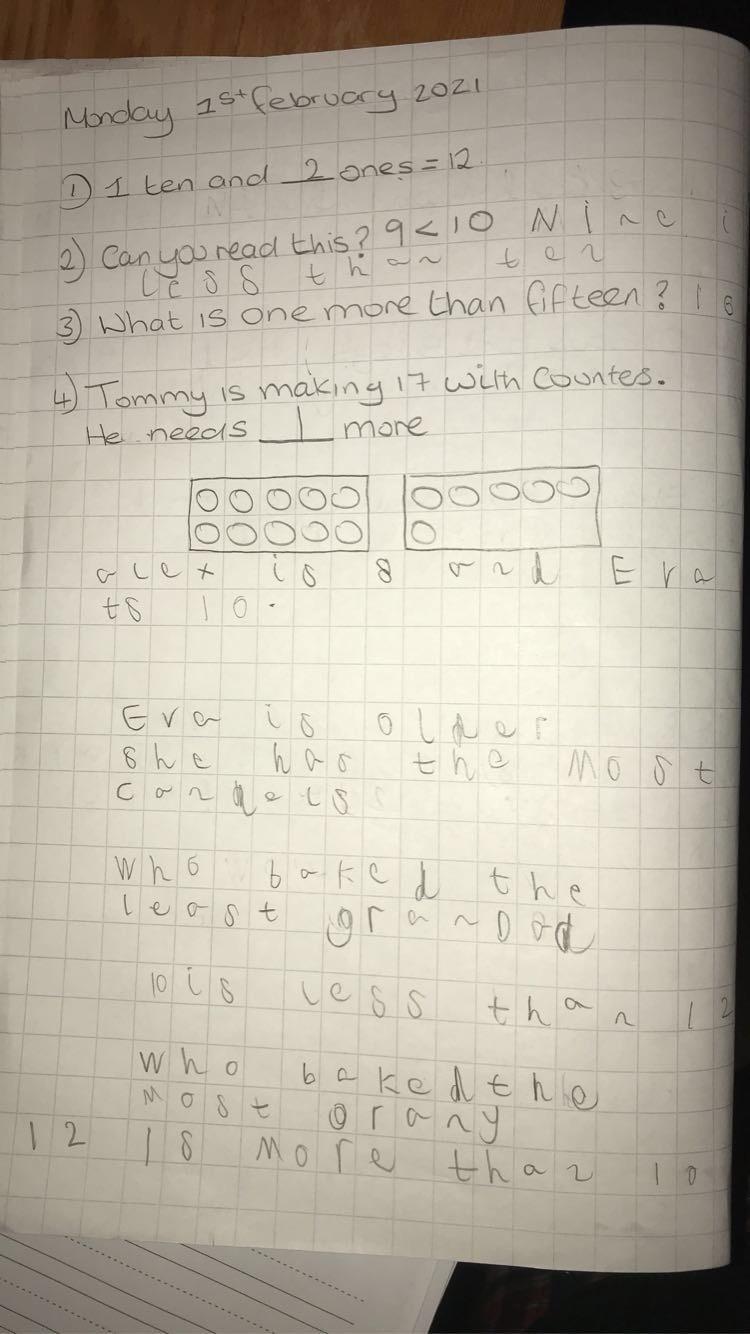 Monday 1st february 2021
① 1 ten and 2 ones = 12
2) Can you read this? 9 < 10 Nine i
less than ten
3) What is one more than fifteen? 16
4) Tommy is making 17 with Countes.
He needs 1 more
alex is 8 and Eva
ts 10.
Eva is older
she has the most
candels
who baked the
least granDad
10 is less than 12
who baked the
most grany
12 is more than 10